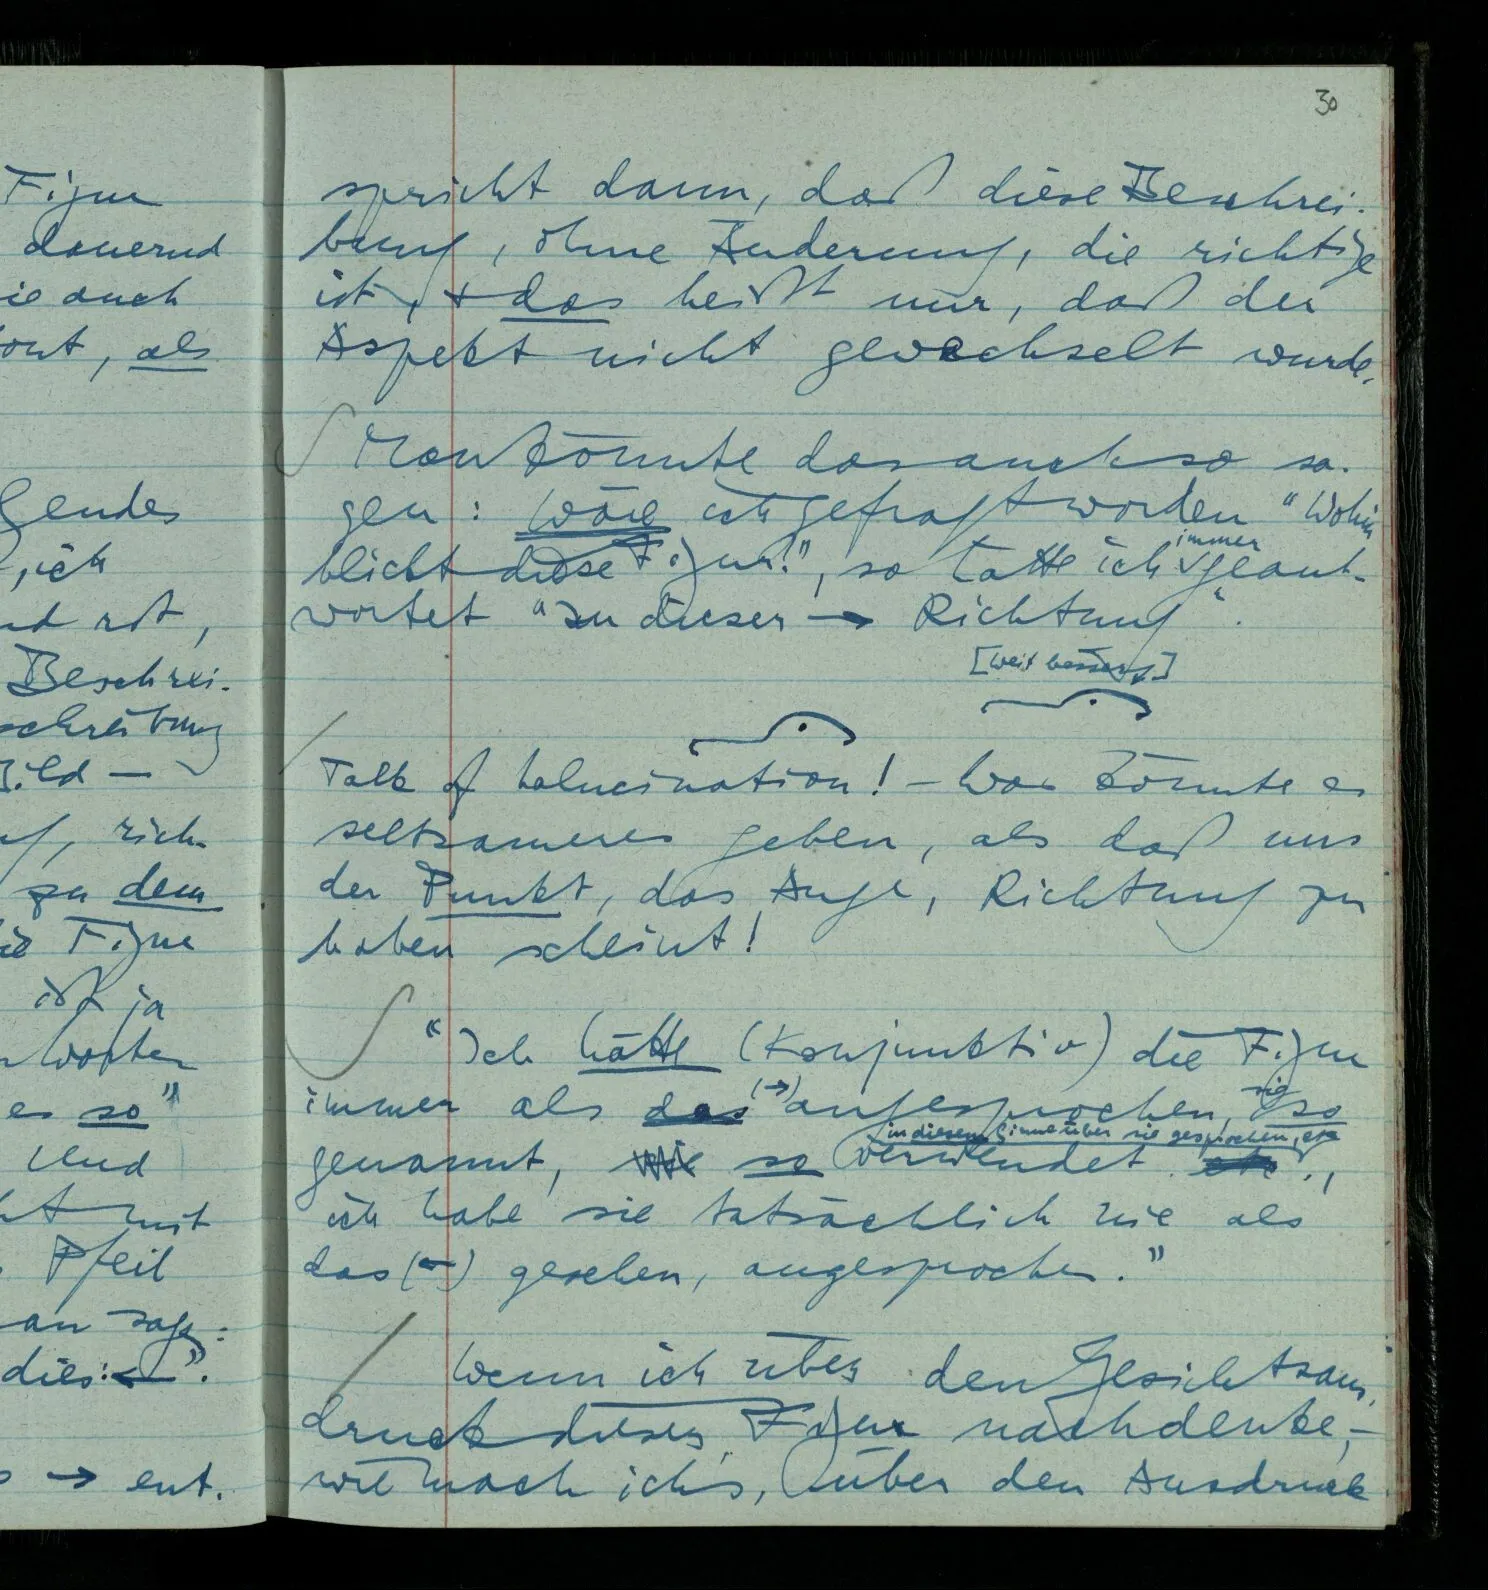 Figur
dauernd
ie auch
ont, als
gendes
, ich
nd ist,
Beschrei-
schreibung
Bild —
rich-
zu dem
ie Figur
ist ja
worten
es so"
Und
ht mit
Pfeil
an sagt:
dies: ←".
→ ent-
30
spricht dann, daß diese Beschrei-
bung, ohne Änderung, die richtige
ist, & das heißt nur, daß der
Aspekt nicht gewechselt wurde.
Man könnte das auch so sa-
gen: Wäre ich gefragt worden "Wohin
blickt diese Figur?", so hätte ich immer geant-
wortet "In dieser → Richtung".
[weit besser]
Talk of halucination! – Was könnte es
seltsameres geben, als daß uns
der Punkt, das Auge, Richtung zu
haben scheint!
"Ich hätte (Konjunktiv) die Figur
immer als das (→) angesprochen, sie so
genannt, so verwendet, in diesem Sinne über sie gesprochen, etc.,
ich habe sie tatsächlich nie als
das (←) gesehen, angesprochen."
Wenn ich über den Gesichtsaus-
druck dieser Figur nachdenke, –
wie mach ich's, über den Ausdruck